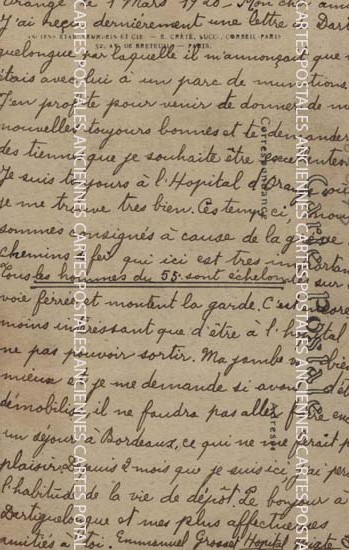 Orange le 1 Mars 1920 - Mon cher ami
J'ai reçu dernièrement une lettre de Dart
ANCIENS ETABLISSEMENTS NEURDEIN ET CIE — E. CRÉTÉ, SUCC., CORBEIL-PARIS
52, AV. DE BRETEUIL — PARIS.
quelongue par laquelle il m'annonçait que
étais avec lui à un parc de munitions
J'en profite pour venir te donner de m
nouvelles toujours bonnes et te demander
des tiennes que je souhaite être excellentes
Je suis toujours à l'Hopital d'Orange où
je me trouve très bien. Ces temps ci, nous
sommes consignés à cause de la grève
chemins fer qui ici est très important
Tous les hommes du 55 sont échelonnés sur
voie ferrée et montent la garde. C'est
moins intéressant que d'être à l'hopital
ne pas pouvoir sortir. Ma jambe va bien
mieux et je me demande si avant d'êt
démobilisé, il ne faudra pas aller faire en
un séjour à Bordeaux, ce qui ne me ferait p
plaisir. Depuis 2 mois que je suis ici, j'ai per
l'habitude de la vie de dépôt. Le bonjour à
Dartiguelongue et mes plus affectueuses
amitiés à toi. Emmanuel Grosset Hopital
Carte Postale
Correspondance
Adresse
CARTES POSTALES ANCIENNES CARTES POSTALES ANCIENNES CARTES POSTALES ANCIENNES CARTES POSTAL
CARTES POSTALES ANCIENNES CARTES POSTALES ANCIENNES CARTES POSTALES ANCIENNES CARTES POSTAL